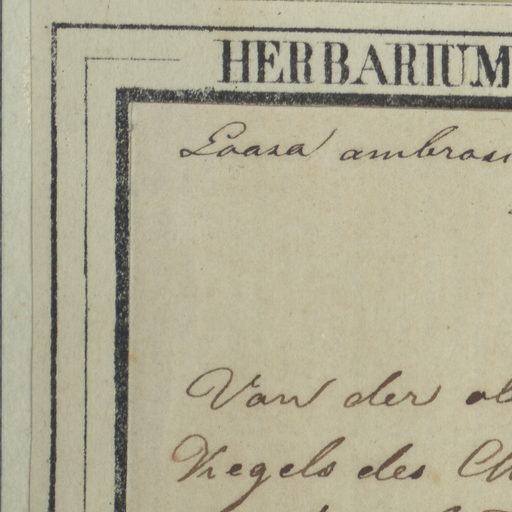 HERBARIUM
Loasa ambrosi
Von der ob
Kegels des Ch